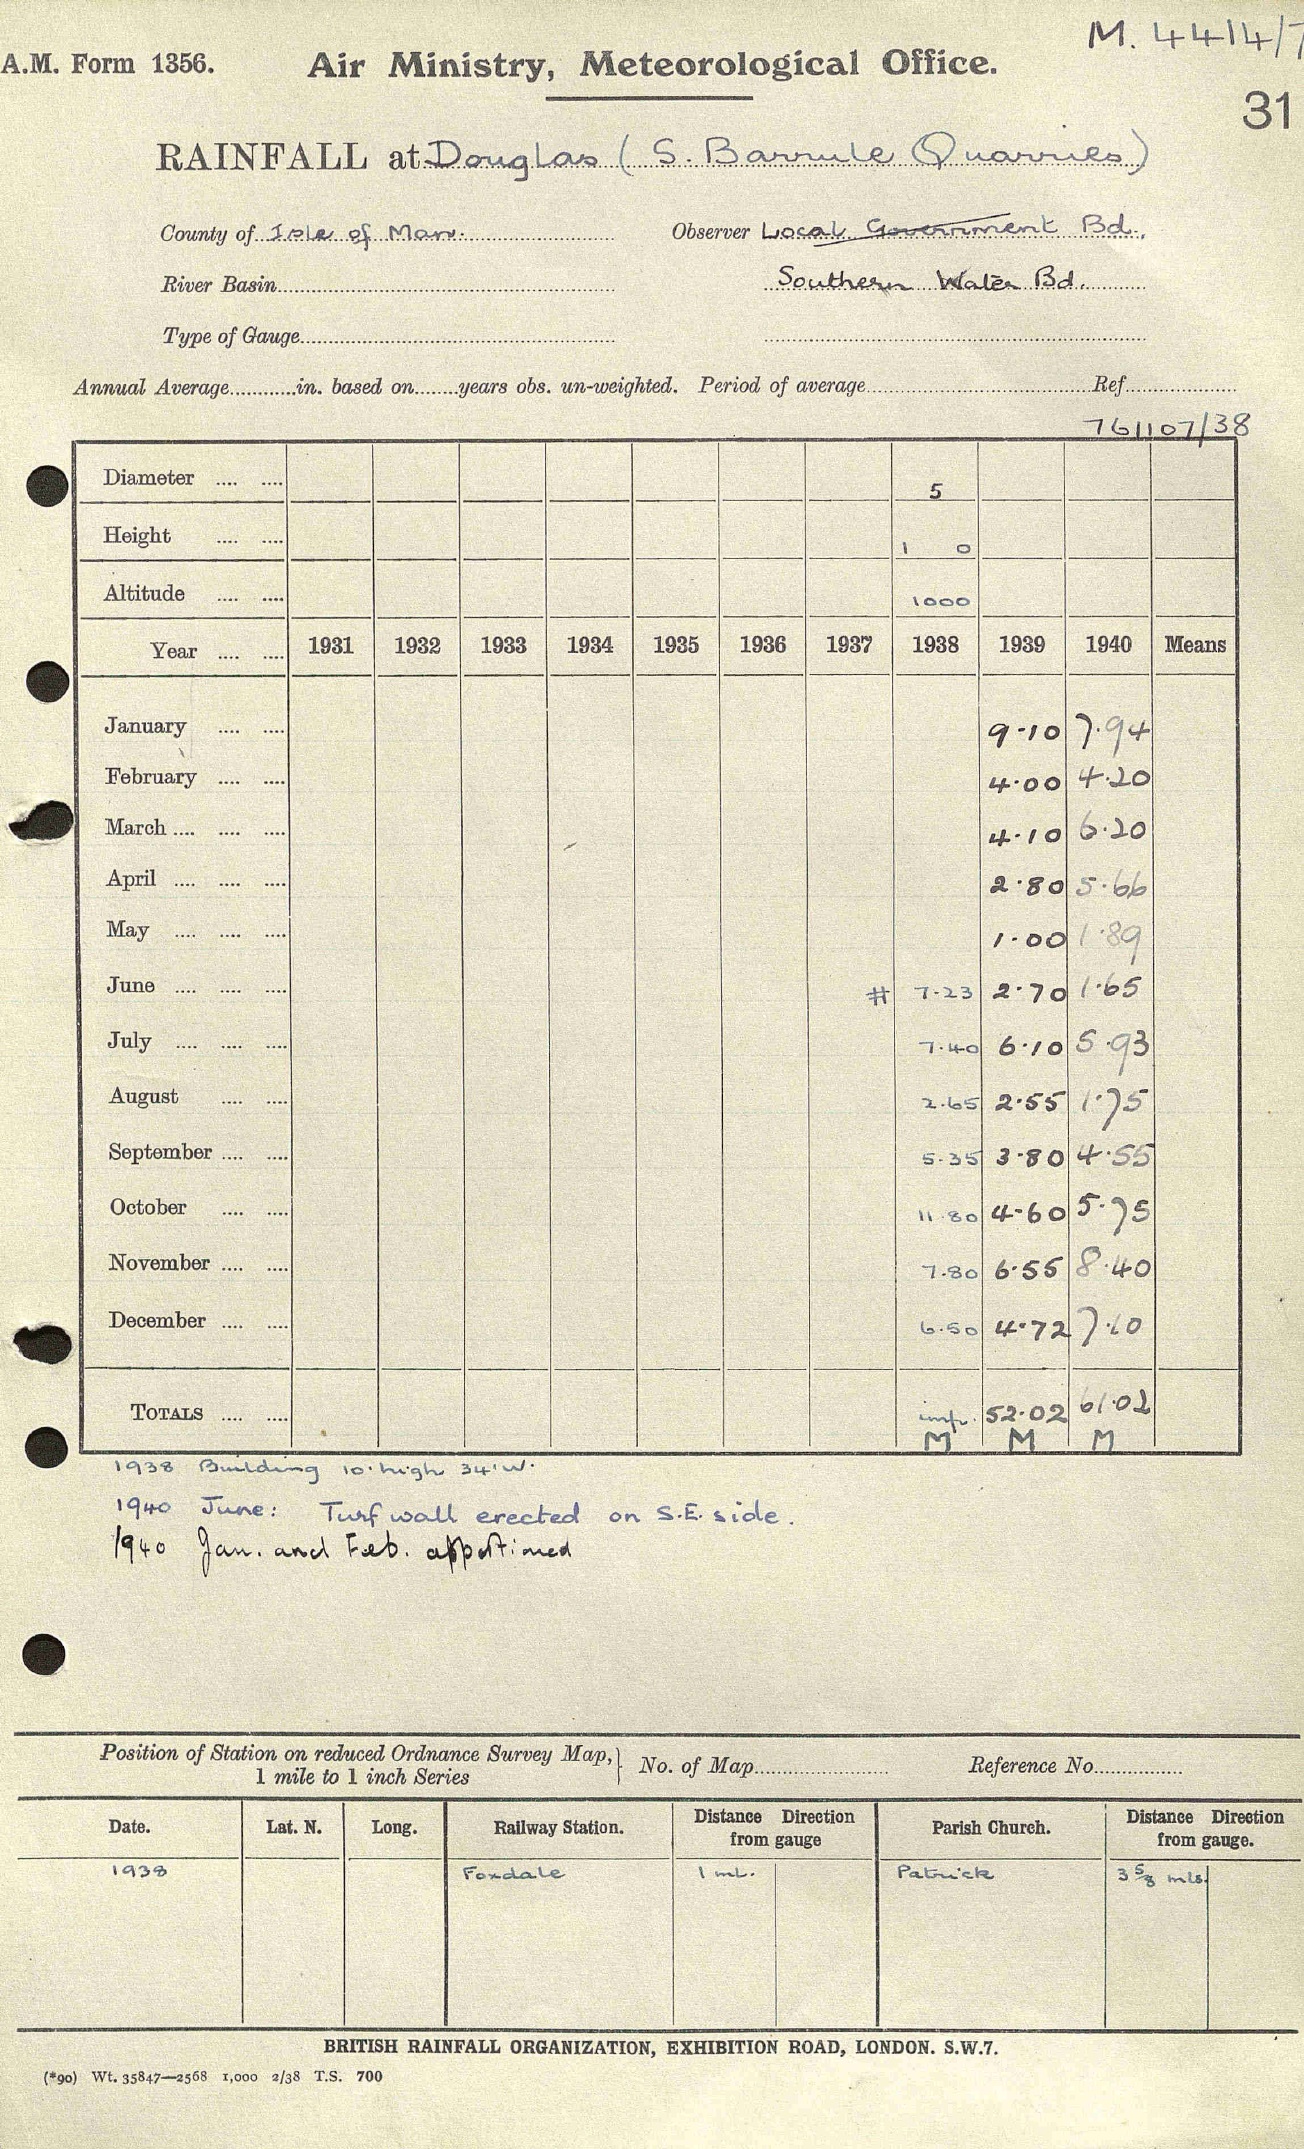 M. 4414/7
A.M. Form 1356. Air Ministry, Meteorological Office.
31
RAINFALL at Douglas (S. Barrule Quarries)
County of Isle of Man. Observer Local Government Bd.,
River Basin Southern Water Bd.
Type of Gauge
Annual Average in. based on years obs. un-weighted. Period of average Ref
761107/38
Diameter .... .... 5
Height .... .... 1 0
Altitude .... .... 1000
Year .... .... 1931 1932 1933 1934 1935 1936 1937 1938 1939 1940 Means
January .... .... 9.10 7.94
February .... .... 4.00 4.20
March .... .... .... 4.10 6.20
April .... .... .... 2.80 5.66
May .... .... .... 1.00 1.89
June .... .... .... # 7.23 2.70 1.65
July .... .... .... 7.40 6.10 5.93
August .... .... 2.65 2.55 1.75
September .... .... 5.35 3.80 4.55
October .... .... 11.80 4.60 5.75
November .... .... 7.80 6.55 8.40
December .... .... 6.50 4.72 7.10
TOTALS .... .... imp. 52.02 61.02
M M M
1938 Building 10' high 34' W.
1940 June: Turf wall erected on S.E. side.
1940 Jan. and Feb. apportioned
Position of Station on reduced Ordnance Survey Map, } No. of Map Reference No.
1 mile to 1 inch Series
Date. Lat. N. Long. Railway Station. Distance Direction from gauge Parish Church. Distance Direction from gauge.
1938 Foxdale 1 ml. Patrick 3 5/8 mls.
BRITISH RAINFALL ORGANIZATION, EXHIBITION ROAD, LONDON. S.W.7.
(*90) Wt. 35847—2568 1,000 2/38 T.S. 700